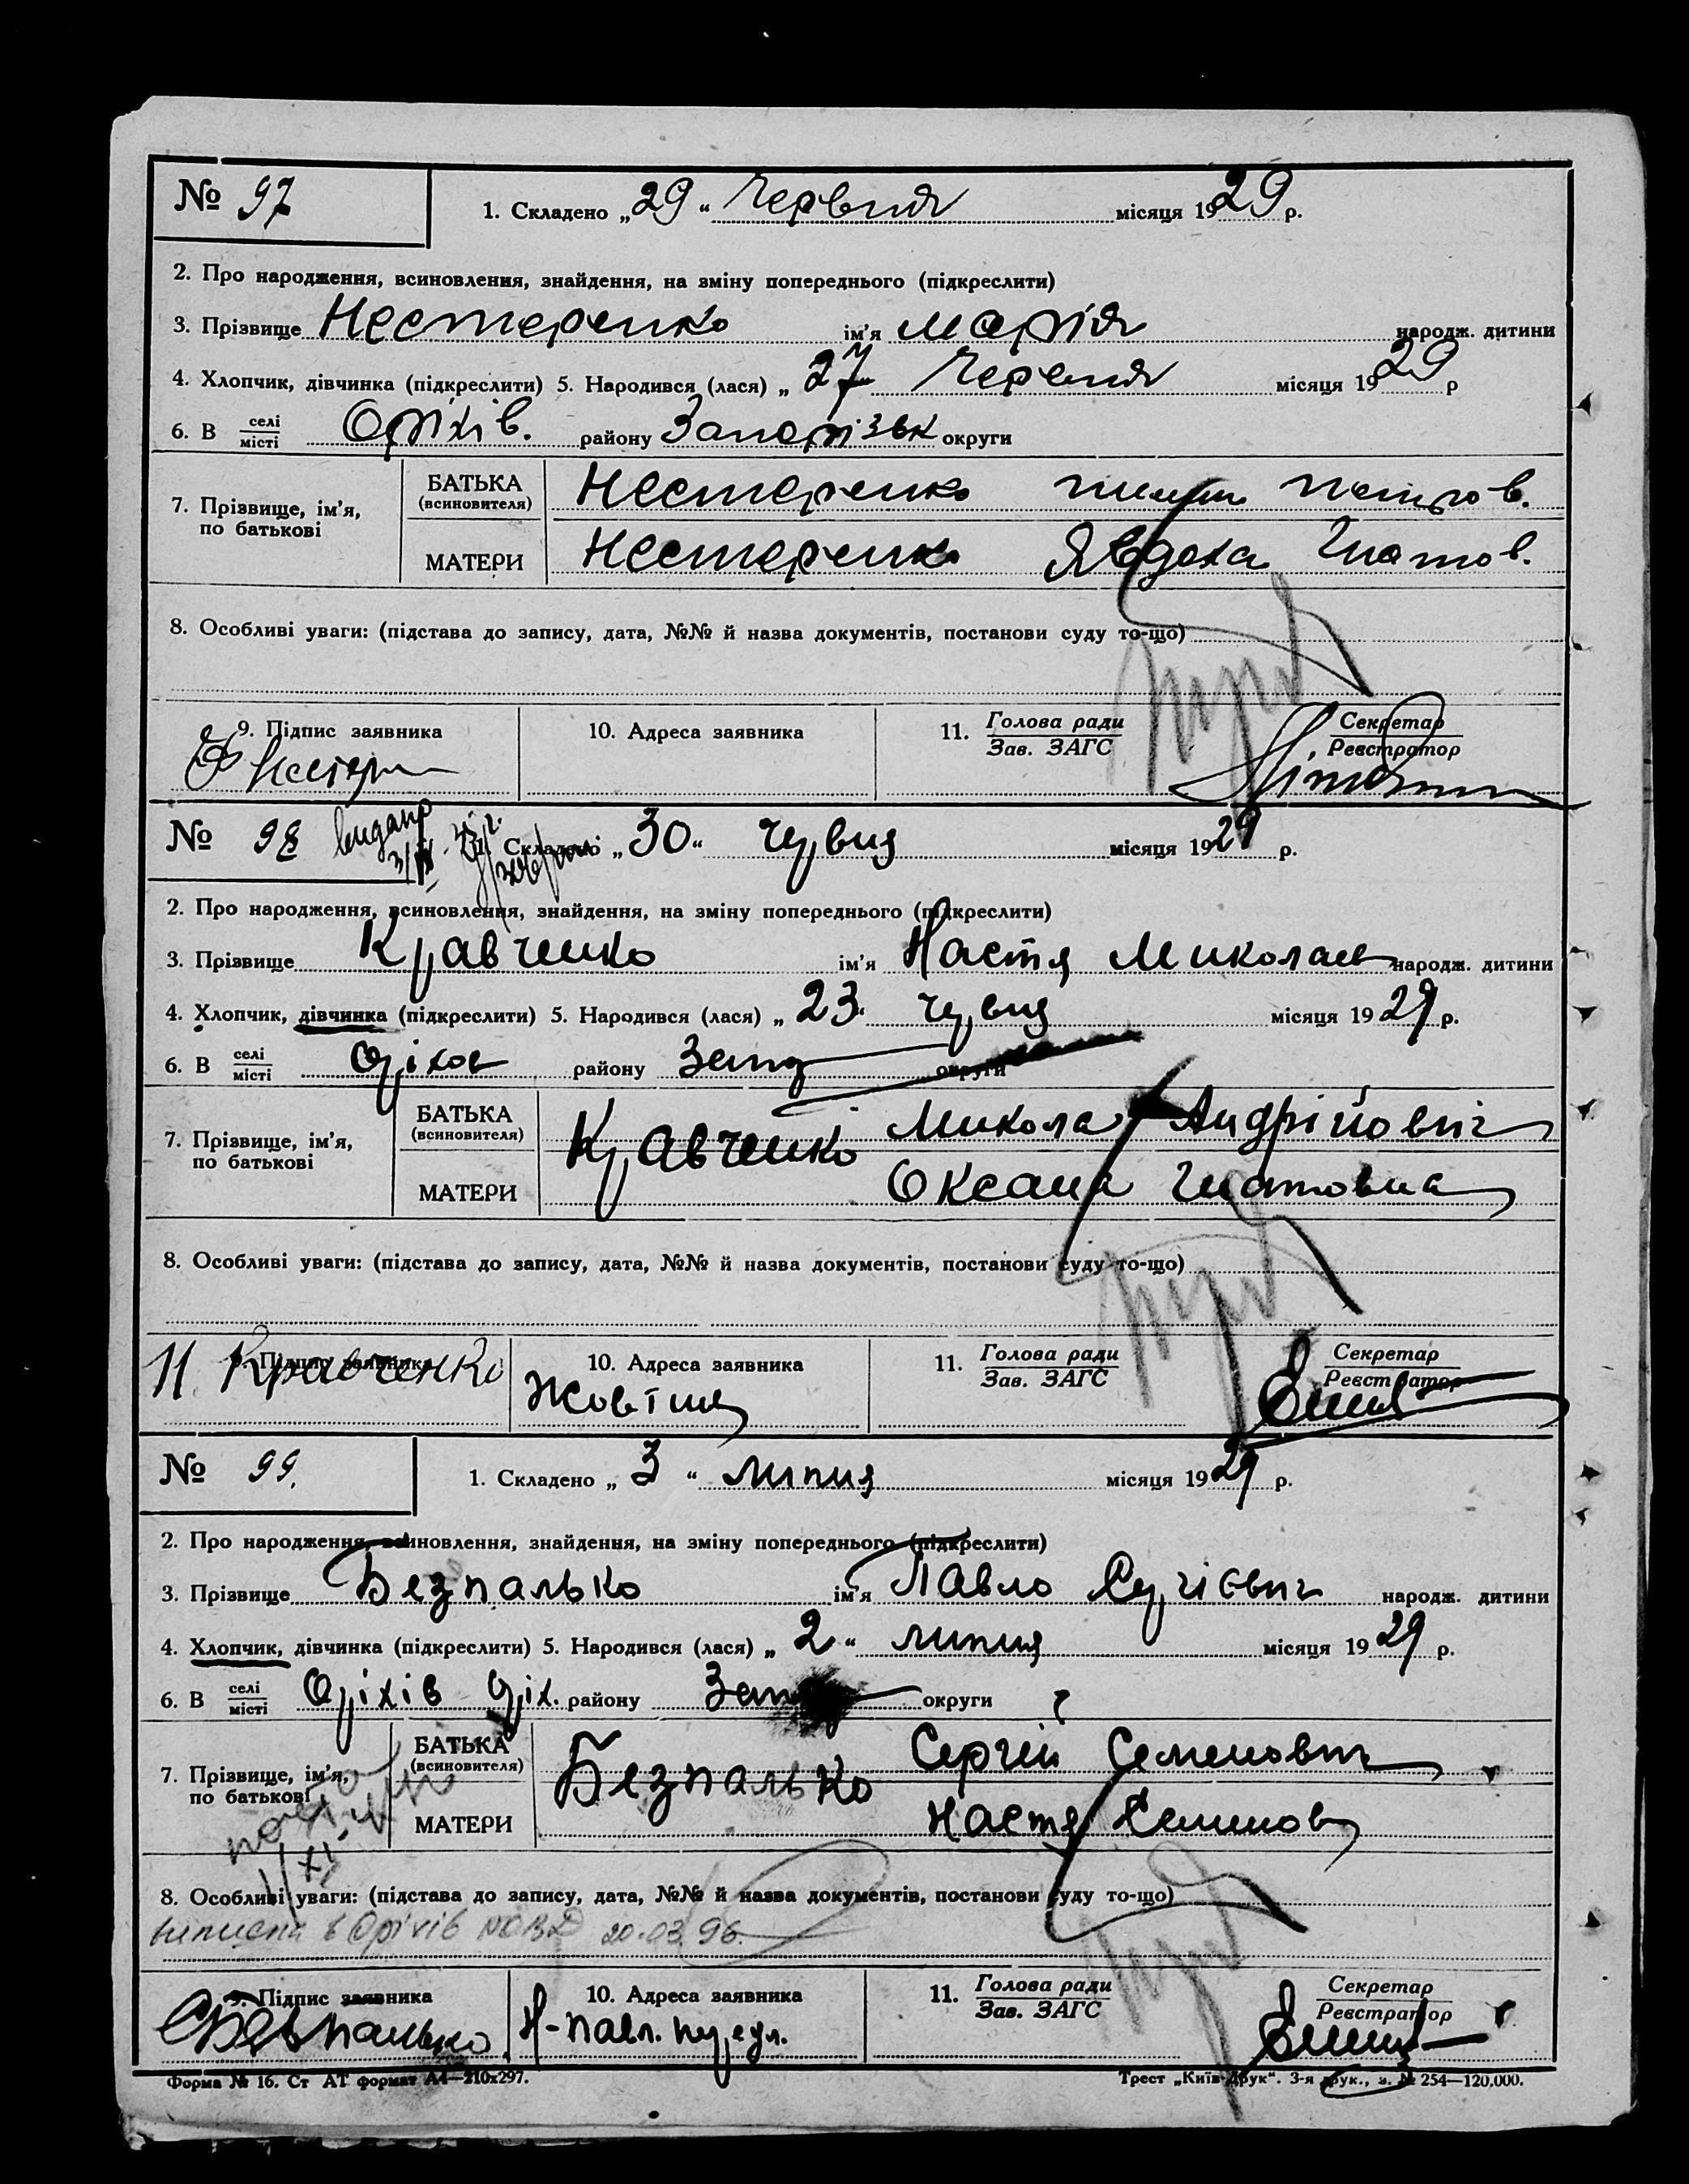 № 97
1. Складено „29“ Червня місяця 1929 р.
2. Про народження, всиновлення, знайдення, на зміну попереднього (підкреслити)
3. Прізвище Нестеренко ім'я Марія народж. дитини
4. Хлопчик, дівчинка (підкреслити) 5. Народився (лася) „27 Червня місяця 1929 р
6. В селі/місті Оріхів. району Запорізьк округи
7. Прізвище, ім'я, по батькові
БАТЬКА (всиновителя) Нестеренко Петров.
МАТЕРИ Нестеренко Явдоха Гнатов.
8. Особливі уваги: (підстава до запису, дата, №№ й назва документів, постанови суду то-що)
9. Підпис заявника 10. Адреса заявника 11. Голова ради/Зав. ЗАГС Секретар/Реєстратор
№ 98 видано
1. Складено „30“ Червня місяця 1929 р.
2. Про народження, всиновлення, знайдення, на зміну попереднього (підкреслити)
3. Прізвище Кравченко ім'я Настя Миколаев народж. дитини
4. Хлопчик, дівчинка (підкреслити) 5. Народився (лася) „23“ Червня місяця 1929 р.
6. В селі/місті Оріхов району Запор округи
7. Прізвище, ім'я, по батькові
БАТЬКА (всиновителя) Кравченко Микола Андрійович
МАТЕРИ Оксана Гнатовна
8. Особливі уваги: (підстава до запису, дата, №№ й назва документів, постанови суду то-що)
9. Підпис заявника 10. Адреса заявника 11. Голова ради/Зав. ЗАГС Секретар/Реєстратор
Н. Кравченко Жовтня
№ 99.
1. Складено „3“ липня місяця 1929 р.
2. Про народження, всиновлення, знайдення, на зміну попереднього (підкреслити)
3. Прізвище Безпалько ім'я Павло Сергієвич народж. дитини
4. Хлопчик, дівчинка (підкреслити) 5. Народився (лася) „2“ липня місяця 1929 р.
6. В селі/місті Оріхів Оріх. району Запор округи
7. Прізвище, ім'я, по батькові
БАТЬКА (всиновителя) Безпалько Сергій Семенович
МАТЕРИ Настя Семенов
8. Особливі уваги: (підстава до запису, дата, №№ й назва документів, постанови суду то-що)
в Оріхів 20.03.96.
9. Підпис заявника 10. Адреса заявника 11. Голова ради/Зав. ЗАГС Секретар/Реєстратор
СБезпалько Н-павл. пер.
Форма № 16. Ст АТ формат А4—210х297. Трест „Київ-Друк“. 3-я друк., з. № 254—120.000.